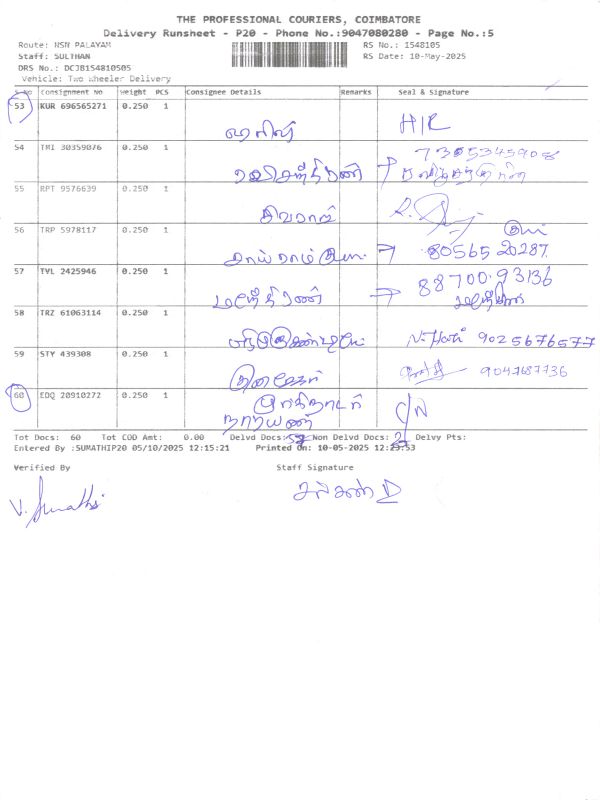 THE PROFESSIONAL COURIERS, COIMBATORE
Delivery Runsheet - P20 - Phone No.:9047080280 - Page No.:5
Route: NSN PALAYAM RS No.: 1548105
Staff: SULTHAN RS Date: 10-May-2025
DRS No.: DCJB1S4810505
Vehicle: Two Wheeler Delivery
S.No Consignment No Weight PCS Consignee Details Remarks Seal & Signature
53 KUR 696565271 0.250 1
H/R
54 TMI 30359076 0.250 1
55 RPT 9576639 0.250 1
சிவராஜ்
56 TRP 5978117 0.250 1
சாய் ராம் → 80565 20287
57 TVL 2425946 0.250 1
மகேந்திரன் → 88700 93136
58 TRZ 61063114 0.250 1
N. Hari 9025676577
59 STY 439308 0.250 1
9047687736
60 EDQ 20910272 0.250 1
நாராயணன்
Tot Docs: 60 Tot COD Amt: 0.00 Delvd Docs: Non Delvd Docs: 2 Delvy Pts:
Entered By :SUMATHIP20 05/10/2025 12:15:21 Printed On: 10-05-2025
Verified By Staff Signature
V. Sumathi